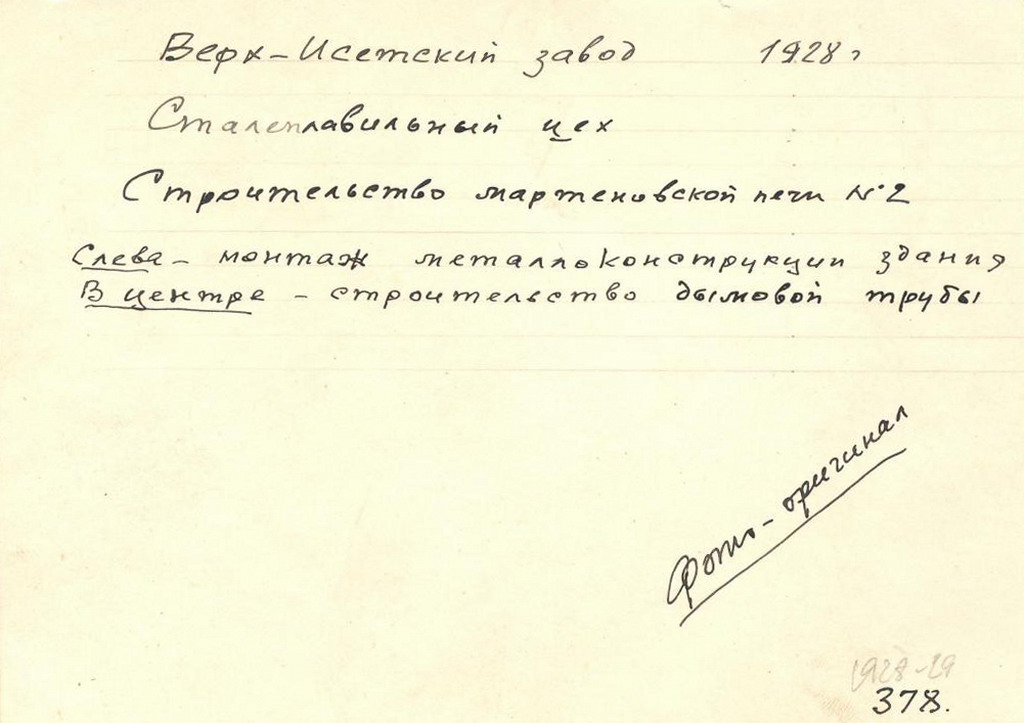 Верх-Исетский завод 1928 г
Сталеплавильный цех
Строительство мартеновской печи №2
Слева - монтаж металлоконструкции здания
В центре - строительство дымовой трубы
Фото-оригинал
1928-29
378.